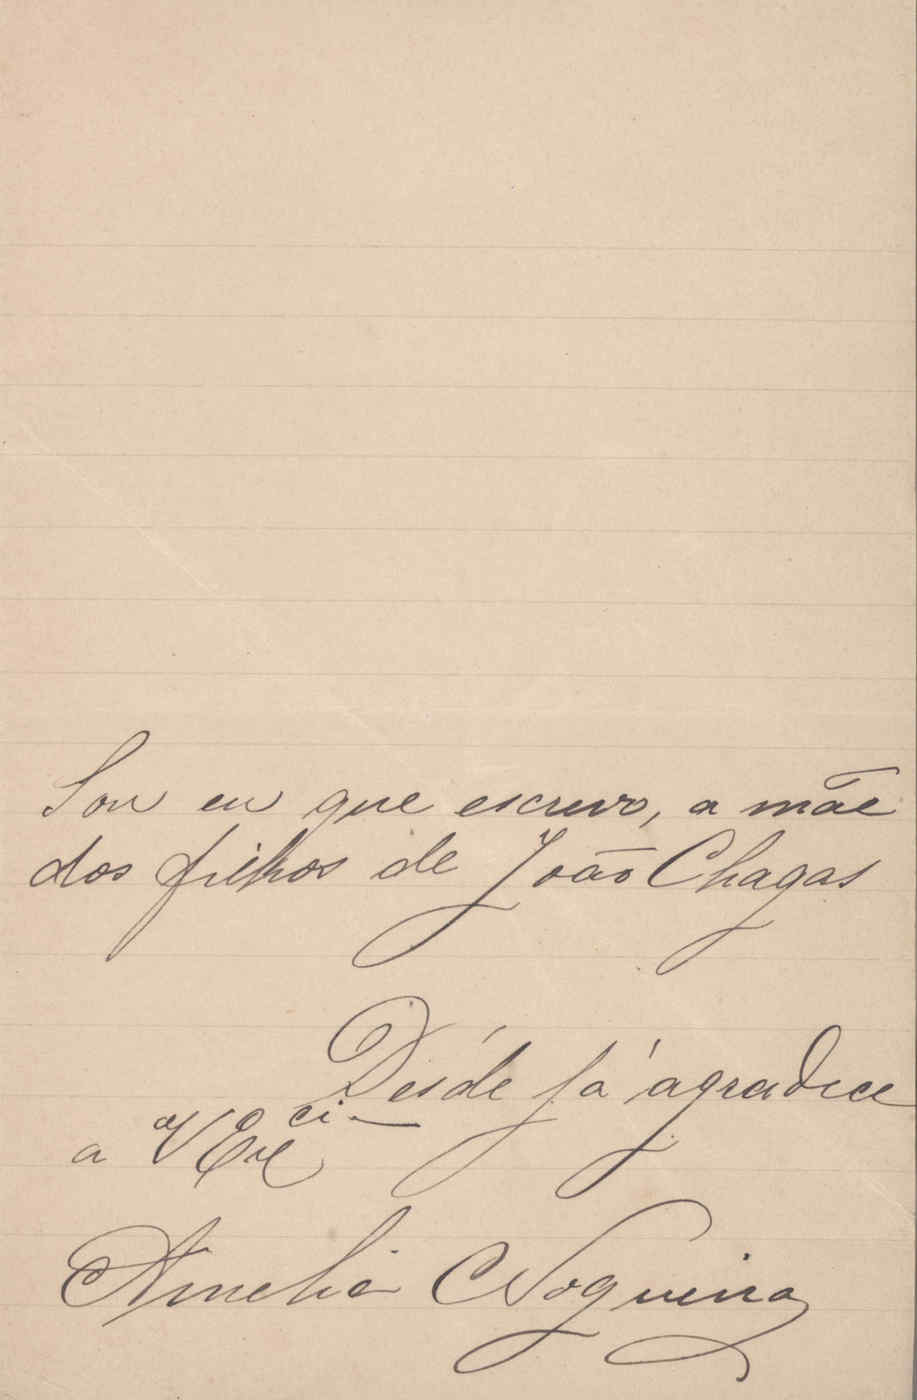 Sou eu que escrevo, a mãe
dos filhos de João Chagas
Desde já agradece
a V Exci.
Amelia Nogueira